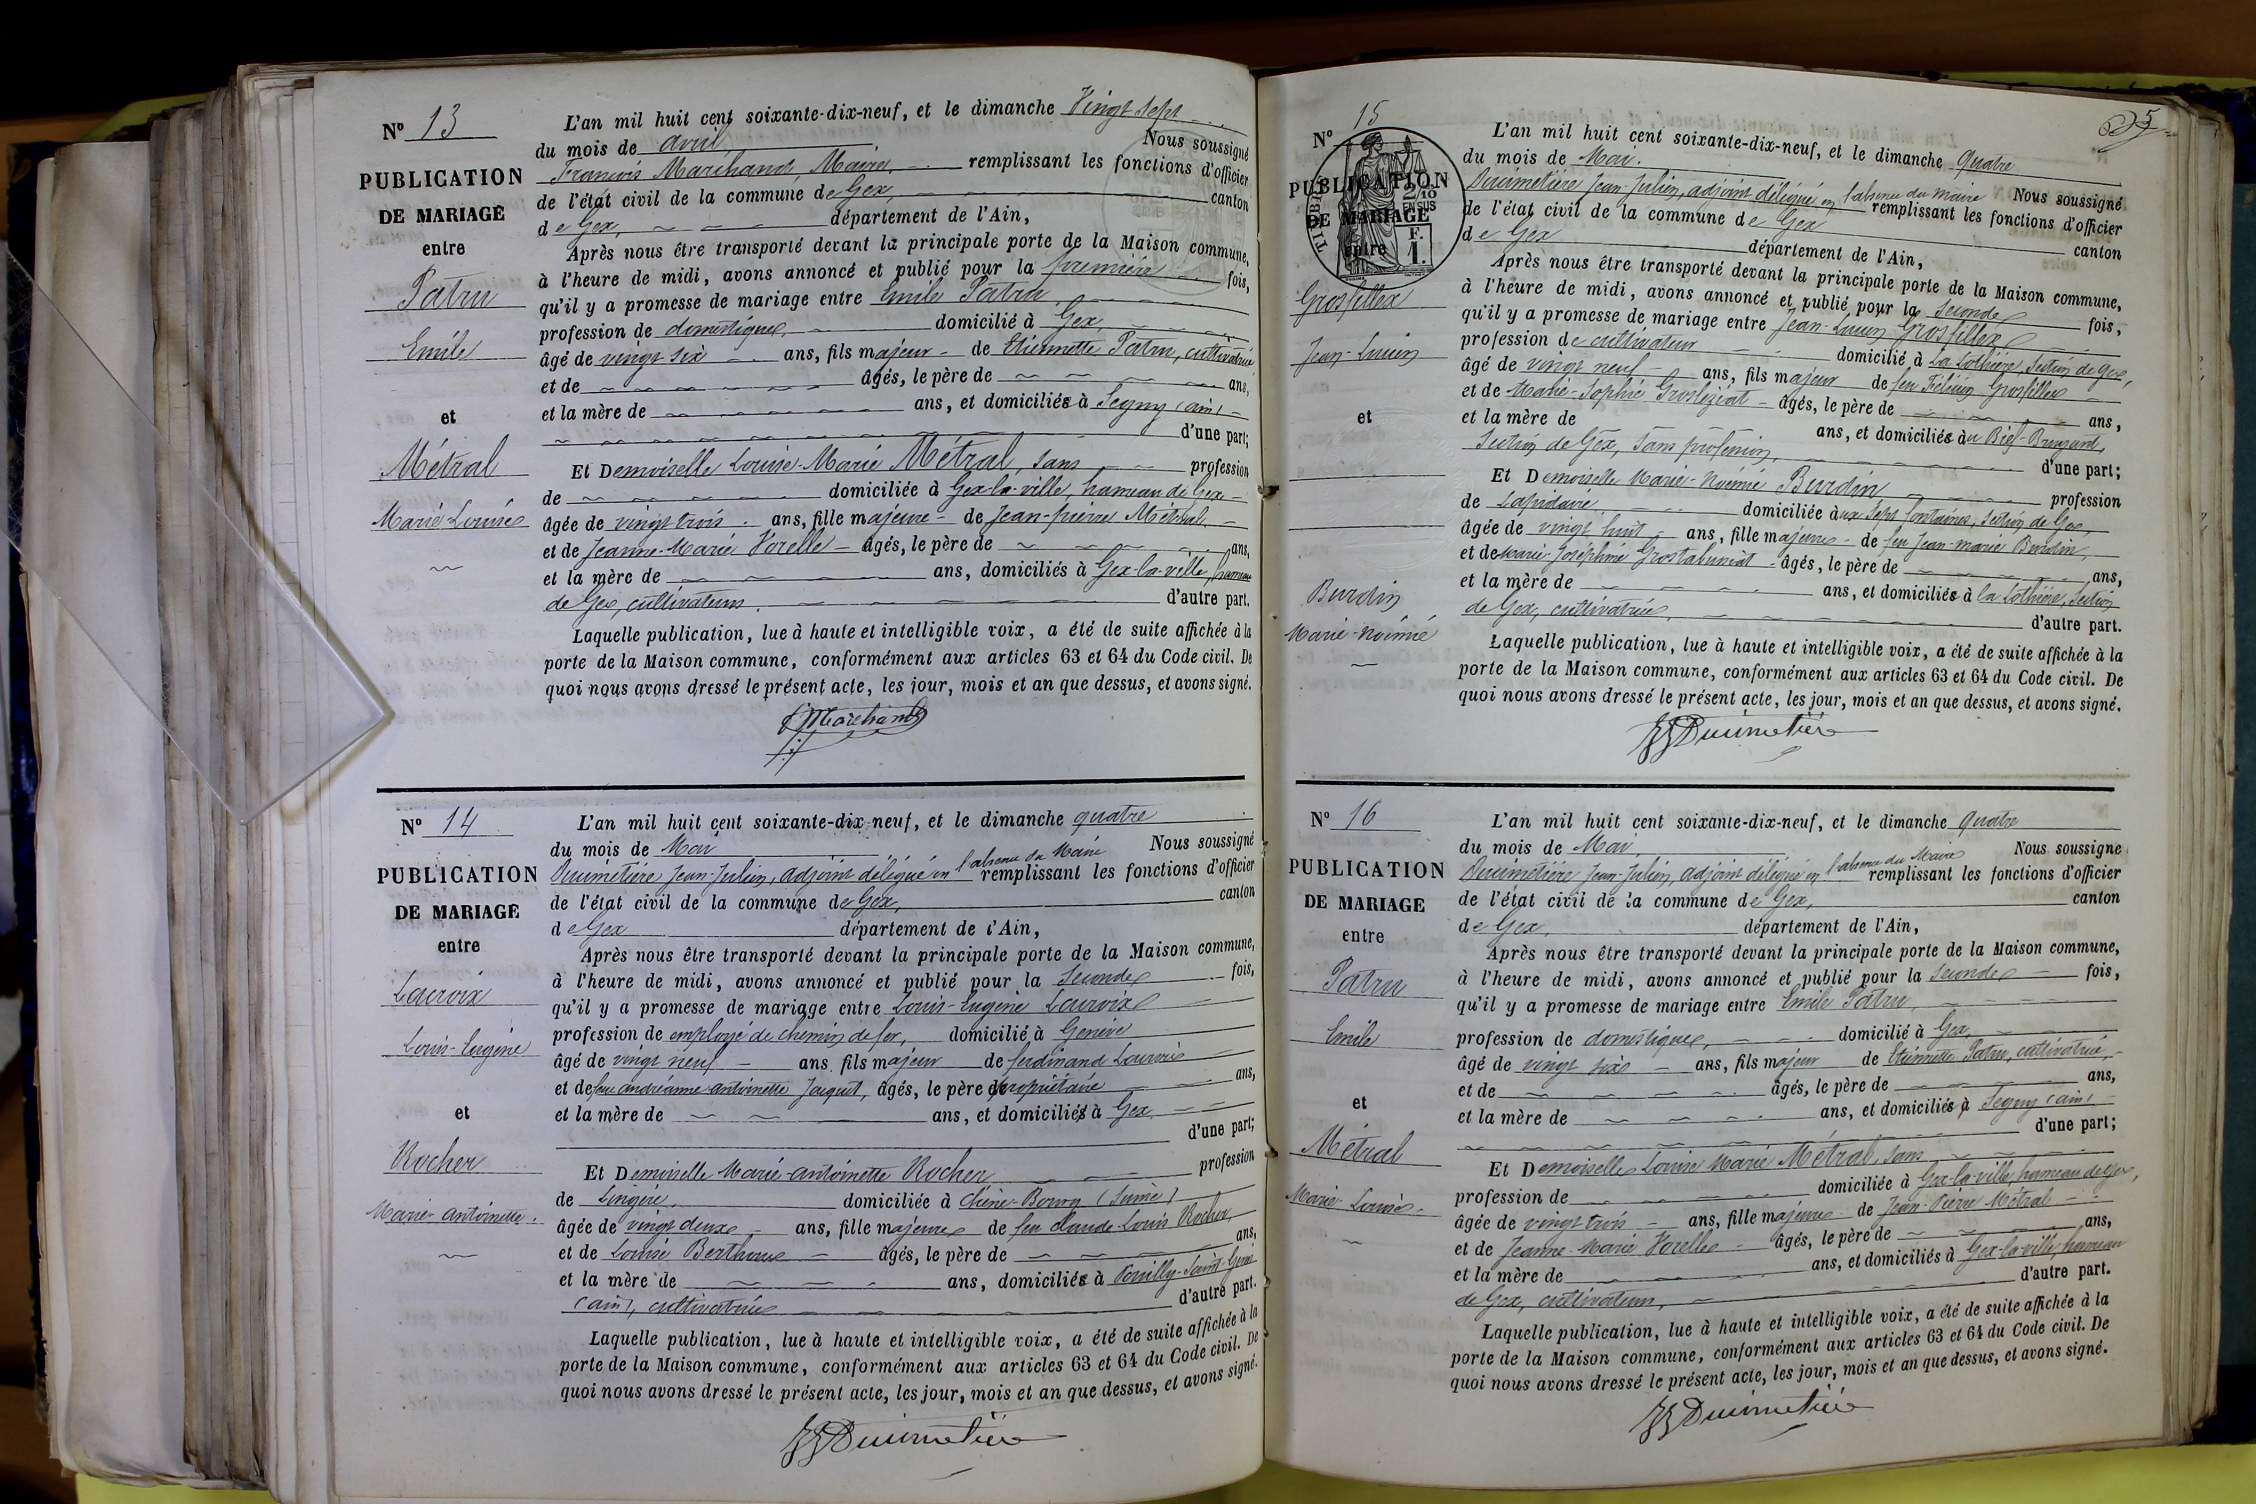 N° 13
PUBLICATION
DE MARIAGE
entre
Patru
Emile
et
Métral
Marie Louise
L'an mil huit cent soixante-dix-neuf, et le dimanche Vingt sept
du mois de avril Nous soussigné
François Marchand, Maire remplissant les fonctions d'officier
de l'état civil de la commune de Gex, canton
de Gex, département de l'Ain,
Après nous être transporté devant la principale porte de la Maison commune,
à l'heure de midi, avons annoncé et publié pour la première fois,
qu'il y a promesse de mariage entre Emile Patru
profession de domestique, domicilié à Gex,
âgé de vingt six ans, fils majeur de Etiennette Patru, cultivatrice
et de âgés, le père de ans,
et la mère de ans, et domiciliés à Segny (ain)
d'une part;
Et Demoiselle Louise-Marie Métral, sans profession
de domiciliée à Gex-la-ville, hameau de Gex
âgée de vingt trois ans, fille majeure de Jean-pierre Métral
et de Jeanne-Marie Vorelle âgés, le père de ans,
et la mère de ans, domiciliés à Gex-la-ville, hameau
de Gex, cultivateurs. d'autre part.
Laquelle publication, lue à haute et intelligible voix, a été de suite affichée à la
porte de la Maison commune, conformément aux articles 63 et 64 du Code civil. De
quoi nous avons dressé le présent acte, les jour, mois et an que dessus, et avons signé.
Marchand
N° 14
PUBLICATION
DE MARIAGE
entre
Lacroix
Louis-Eugène
et
Rocher
Marie-antoinette.
L'an mil huit cent soixante-dix-neuf, et le dimanche quatre
du mois de Mai Nous soussigné
Ducimetière Jean-Julien, adjoint délégué en l'absence du Maire remplissant les fonctions d'officier
de l'état civil de la commune de Gex, canton
de Gex département de l'Ain,
Après nous être transporté devant la principale porte de la Maison commune,
à l'heure de midi, avons annoncé et publié pour la seconde fois,
qu'il y a promesse de mariage entre Louis-Eugène Lacroix
profession de employé de chemin de fer, domicilié à Genève
âgé de vingt neuf ans, fils majeur de ferdinand Lacroix
et de feu andréanne antoinette Jacquet, âgés, le père propriétaire ans,
et la mère de ans, et domiciliés à Gex
d'une part;
Et Demoiselle Marie antoinette Rocher profession
de Lingère, domiciliée à chêne-Bourg (Suisse)
âgée de vingt deux ans, fille majeure de feu claude Louis Rocher,
et de Louise Berthoux âgés, le père de ans,
et la mère de ans, domiciliés à Pouilly-Saint-Genis
(ain), cultivatrice d'autre part.
Laquelle publication, lue à haute et intelligible voix, a été de suite affichée à la
porte de la Maison commune, conformément aux articles 63 et 64 du Code civil. De
quoi nous avons dressé le présent acte, les jour, mois et an que dessus, et avons signé.
JJ Ducimetière
N° 15
PUBLICATION
DE MARIAGE
entre
2/10
EN SUS
F.
1.
Grosfillex
Jean-Lucien
et
Burdin
Marie-Noémie
L'an mil huit cent soixante-dix-neuf, et le dimanche quatre
du mois de Mai. Nous soussigné
Ducimetière Jean-Julien, adjoint délégué en l'absence du maire remplissant les fonctions d'officier
de l'état civil de la commune de Gex
de Gex département de l'Ain, canton
Après nous être transporté devant la principale porte de la Maison commune,
à l'heure de midi, avons annoncé et publié pour la seconde fois,
qu'il y a promesse de mariage entre Jean-Lucien Grosfillex
profession de cultivateur domicilié à La Lothière, Section de Gex,
âgé de vingt neuf ans, fils majeur de feu Grosfillex
et de Marie-Sophie âgés, le père de ans,
et la mère de ans, et domiciliés au Bief-
Section de Gex, sans profession, d'une part;
Et Demoiselle Marie-Noémie Burdin profession
de Lapidaire domiciliée aux Sept fontaines, Section de Gex,
âgée de vingt huit ans, fille majeure de feu Jean-marie Burdin,
et de marie-Joséphine âgés, le père de ans,
et la mère de ans, et domiciliés à la Lothière, Section
de Gex, cultivatrice, d'autre part.
Laquelle publication, lue à haute et intelligible voix, a été de suite affichée à la
porte de la Maison commune, conformément aux articles 63 et 64 du Code civil. De
quoi nous avons dressé le présent acte, les jour, mois et an que dessus, et avons signé.
JJ Ducimetière
N° 16
PUBLICATION
DE MARIAGE
entre
Patru
Emile
et
Métral
Marie-Louise
L'an mil huit cent soixante-dix-neuf, et le dimanche quatre
du mois de Mai Nous soussigné
Ducimetière Jean-Julien, adjoint délégué en l'absence du Maire remplissant les fonctions d'officier
de l'état civil de la commune de Gex, canton
de Gex, département de l'Ain,
Après nous être transporté devant la principale porte de la Maison commune,
à l'heure de midi, avons annoncé et publié pour la seconde fois,
qu'il y a promesse de mariage entre Emile Patru
profession de domestique, domicilié à Gex,
âgé de vingt six ans, fils majeur de Etiennette Patru, cultivatrice,
et de âgés, le père de ans,
et la mère de ans, et domiciliés à Segny (ain)
d'une part;
Et Demoiselle Louise Marie Métral, sans
profession de domiciliée à Gex-la-ville, hameau de Gex,
âgée de vingt trois ans, fille majeure de Jean-Pierre Métral
et de Jeanne-Marie Vorelle âgés, le père de ans,
et la mère de ans, et domiciliés à Gex-la-ville, hameau
de Gex, cultivateurs, d'autre part.
Laquelle publication, lue à haute et intelligible voix, a été de suite affichée à la
porte de la Maison commune, conformément aux articles 63 et 64 du Code civil. De
quoi nous avons dressé le présent acte, les jour, mois et an que dessus, et avons signé.
JJ Ducimetière